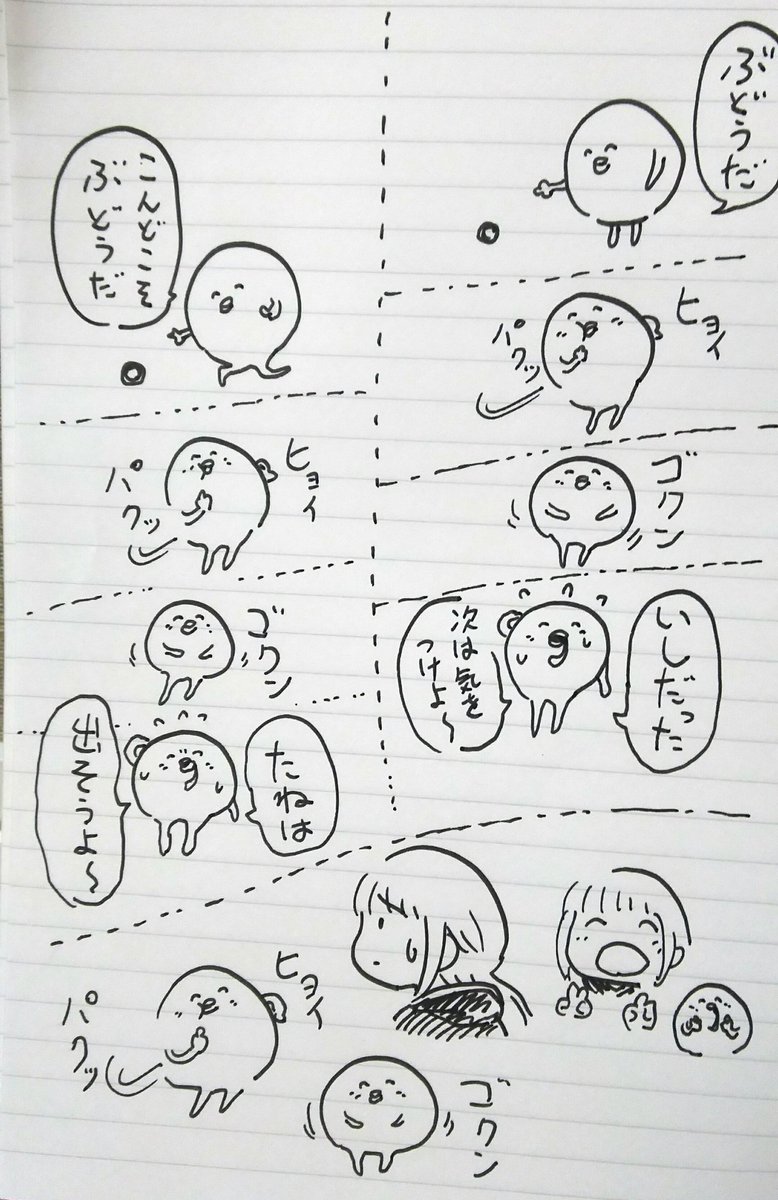 ぶどうだ
ヒョイ
パクッ
ゴクン
いしだった
次は気を
つけよ〜
こんどこそ
ぶどうだ
ヒョイ
パクッ
ゴクン
たねは
出そうよ〜
ヒョイ
パクッ
ゴクン